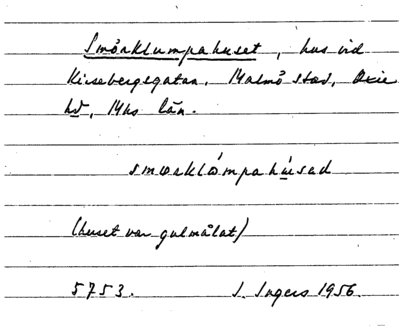 Smörklumpahuset, hus vid
Kirsebergsgatan. Malmö stad, Oxie
hd, Mhs län.
smœrklómpahúsad
(huset var gulmålat)
5753. I. Ingers 1956.